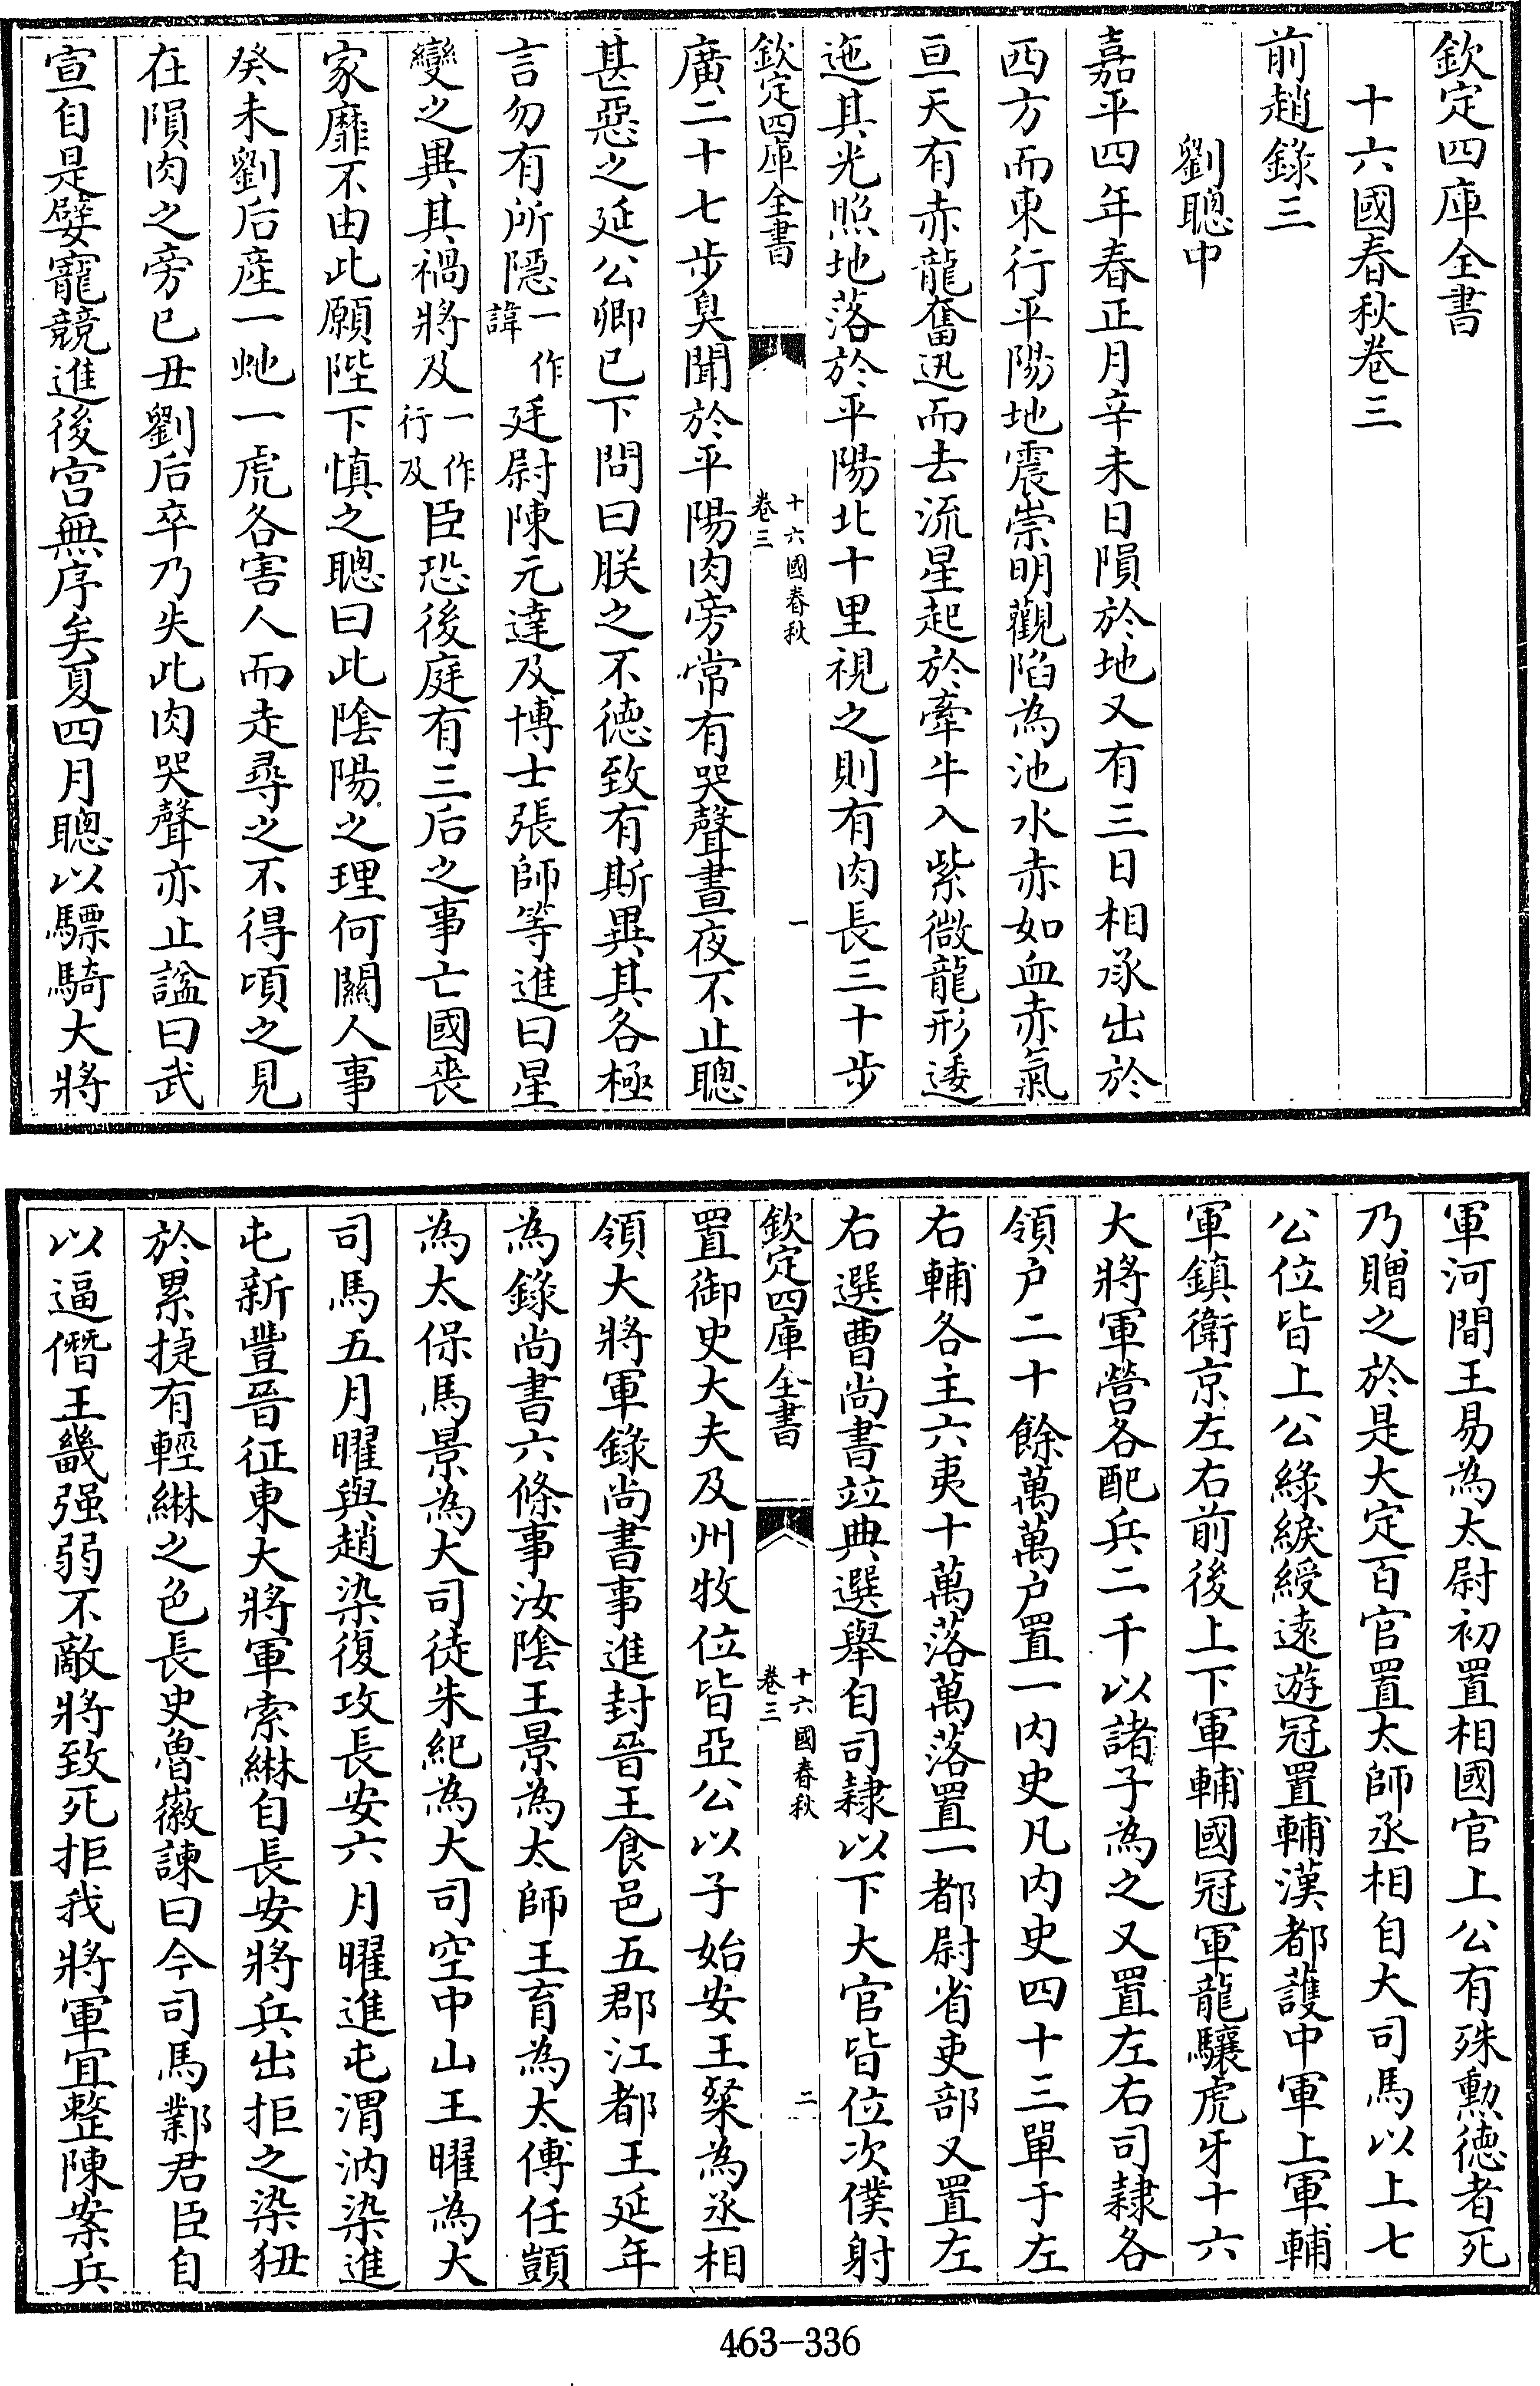 欽定四庫全書
十六國春秋卷三
前趙錄三
劉聰中
嘉平四年春正月辛未日隕於地又有三日相承出於
西方而東行平陽地震崇明觀陷為池水赤如血赤氣
亘天有赤龍奮迅而去流星起於牽牛入紫微龍形逶
迤其光照地落於平陽北十里視之則有肉長三十步
欽定四庫全書
十六國春秋
卷三
一
廣二十七步臭聞於平陽肉旁常有哭聲晝夜不止聰
甚惡之延公卿已下問曰朕之不德致有斯異其各極
言勿有所隱一作諱廷尉陳元達及博士張師等進曰星
變之異其禍將及一作行及臣恐後庭有三后之事亡國喪
家靡不由此願陛下慎之聰曰此陰陽之理何關人事
癸未劉后產一虵一虎各害人而走尋之不得頃之見
在隕肉之旁巳丑劉后卒乃失此肉哭聲亦止諡曰武
宣自是嬖寵競進後宮無序矣夏四月聰以驃騎大將
軍河間王易為太尉初置相國官上公有殊勲德者死
乃贈之於是大定百官置太師丞相自大司馬以上七
公位皆上公綠綟綬遠遊冠置輔漢都護中軍上軍輔
軍鎮衛京左右前後上下軍輔國冠軍龍驤虎牙十六
大將軍營各配兵二千以諸子為之又置左右司隸各
領户二十餘萬萬户置一内史凡内史四十三單于左
右輔各主六夷十萬落萬落置一都尉省吏部又置左
右選曹尚書竝典選舉自司隸以下大官皆位次僕射
欽定四庫全書
十六國春秋
卷三
二
置御史大夫及州牧位皆亞公以子始安王粲為丞相
領大將軍錄尚書事進封晉王食邑五郡江都王延年
為錄尚書六條事汝陰王景為太師王育為太傅任顗
為太保馬景為大司徒朱紀為大司空中山王曜為大
司馬五月曜與趙染復攻長安六月曜進屯渭汭染進
屯新豐晉征東大將軍索綝自長安將兵出拒之染狃
於累捷有輕綝之色長史魯徽諫曰今司馬鄴君臣自
以逼僭王畿强弱不敵將致死拒我將軍宜整陳案兵
463-336